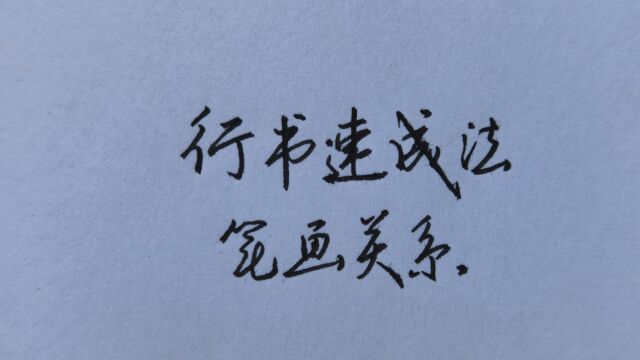 行书速成法
笔画关系.